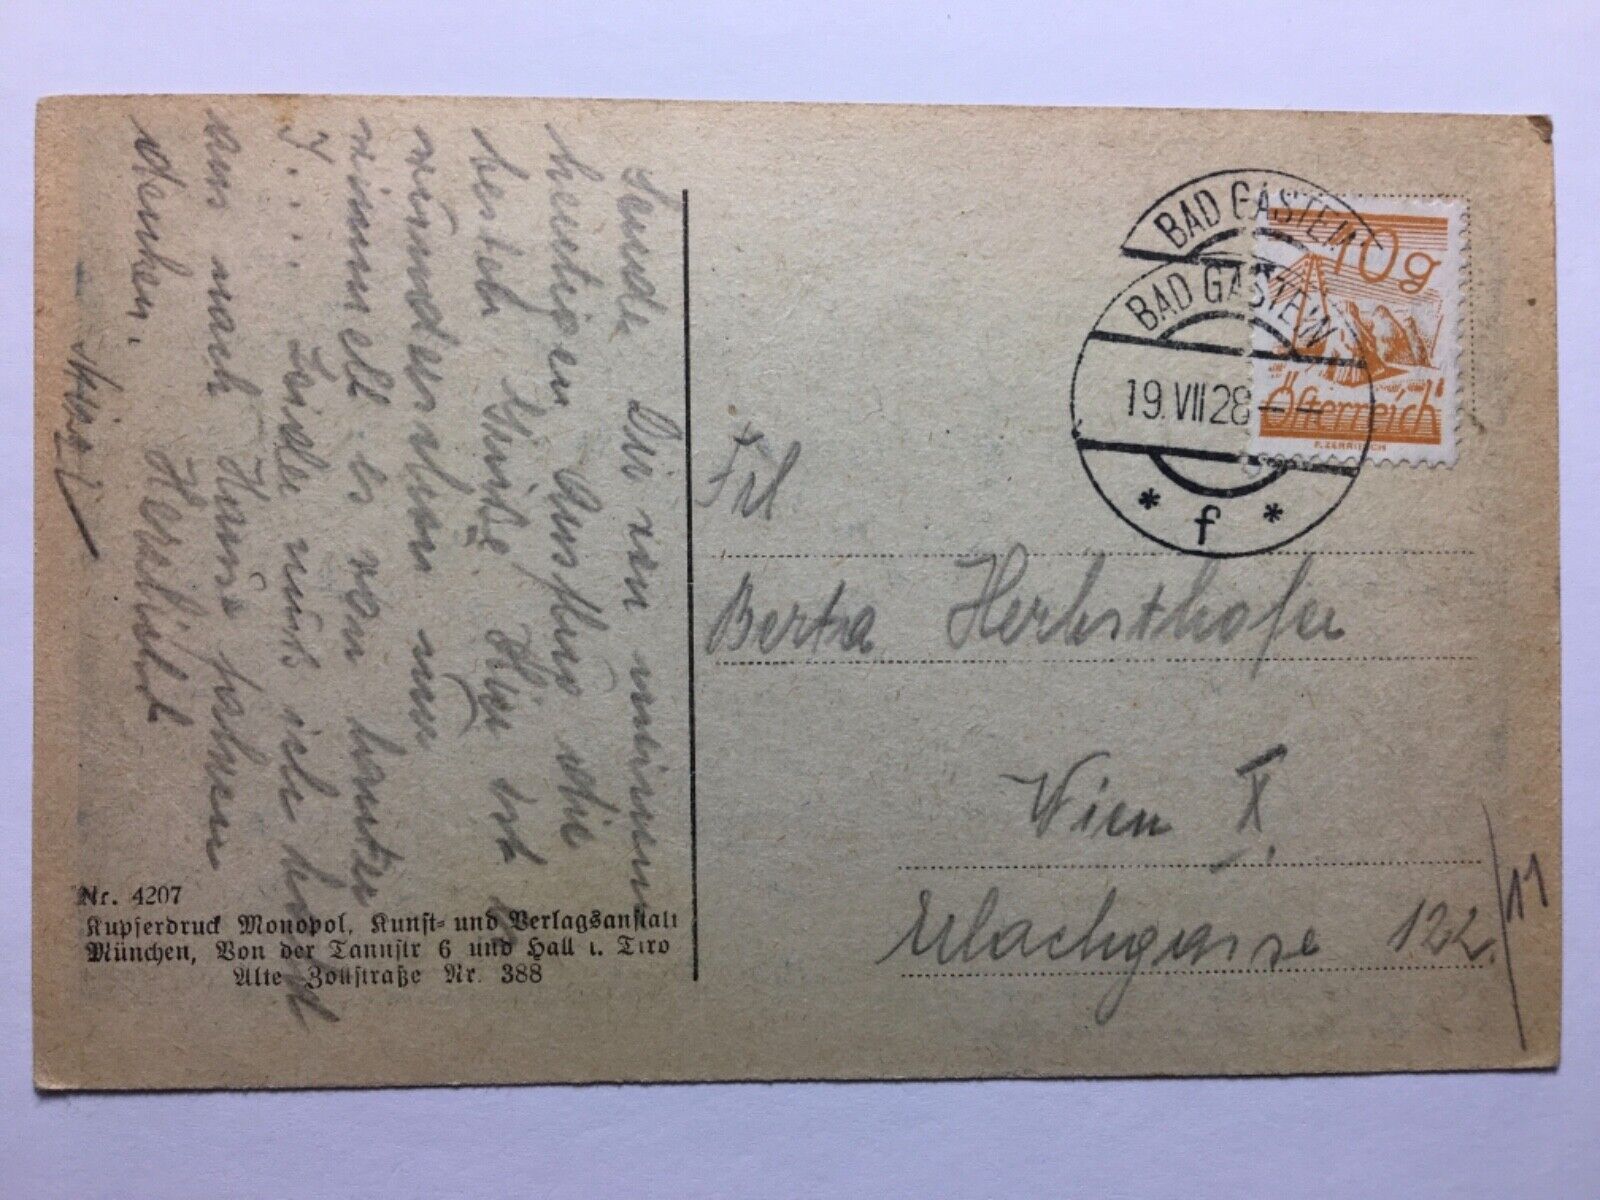 Sende Dir von meinem
heutigen Ausflug die
besten Grüße. Hier ist
wunderschön nur
wimmelt es von
J.... Leider muß ich
nach Hause fahren
denken.
Herzlichst
Nr. 4207
Kupferdruck Monopol, Kunst- und Verlagsanstalt
München, Von der Tannstr 6 und Hall i. Tiro
Alte Zollstraße Nr. 388
BAD GASTEIN
BAD GASTEIN
19.VII 28
* f *
10g
Österreich
Frl
Berta Herbsthofer
Wien X.
Erlachgasse 122/11